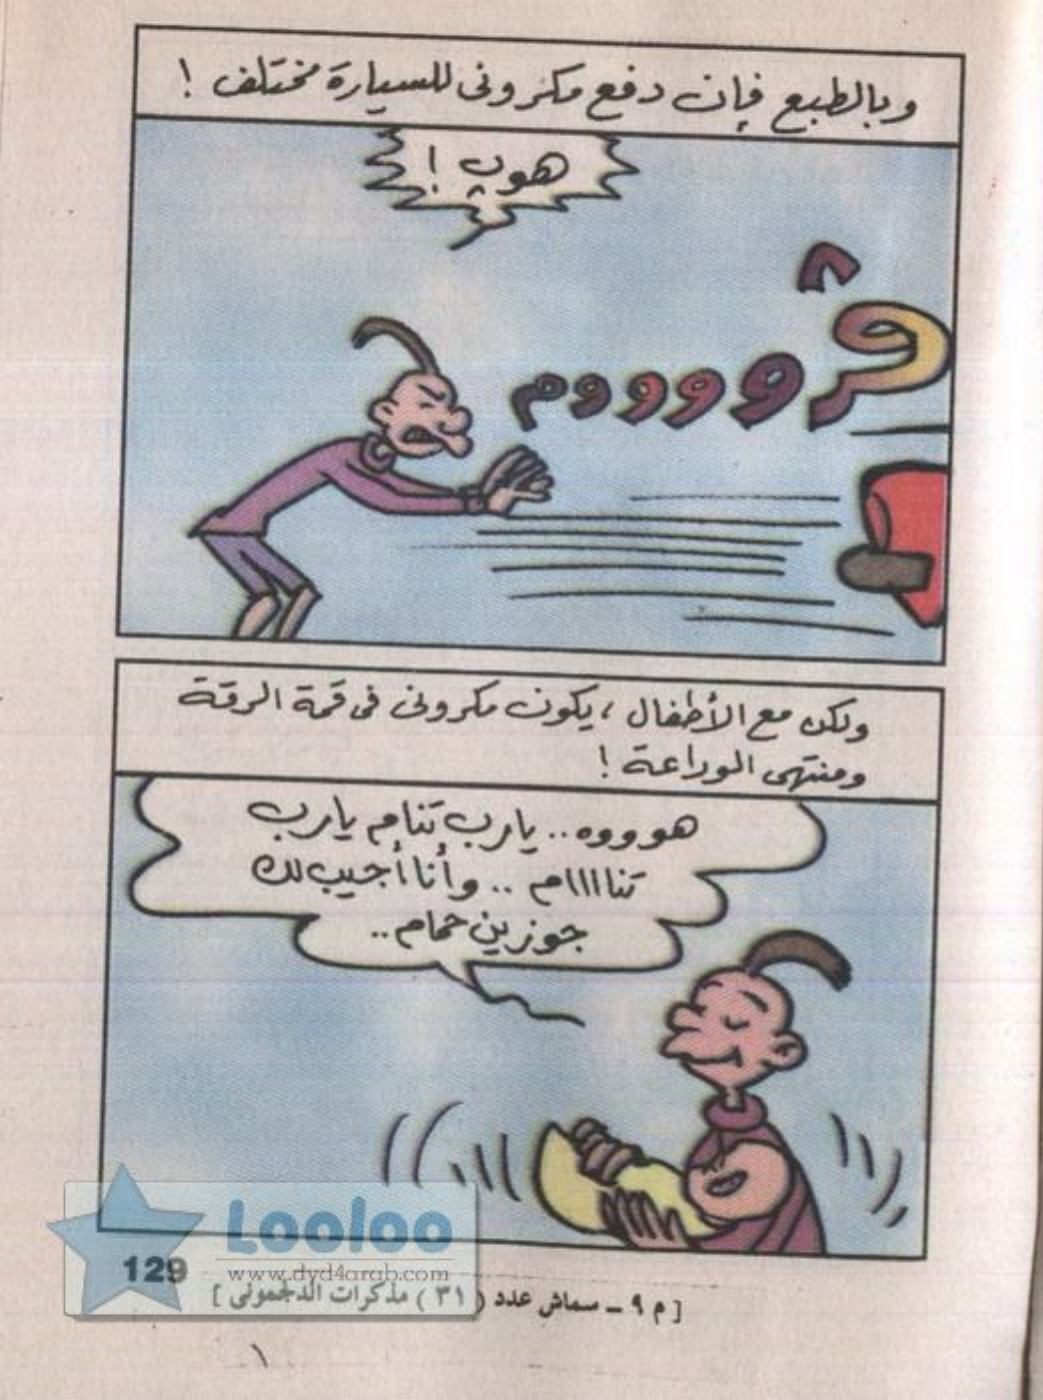 وبالطبع فإن دفع مكرونى للسيارة مختلف !
هوپ !
ڤرووووم
ولكن مع الأطفال ، يكون مكرونى فى قمة الرقة
ومنتهى الوداعة !
هوووه .. يارب تنام يارب
تنااااام .. وأنا أجيب لك
جوزين حمام ..
Looloo
www.dyd4arab.com
129
[ م ٩ ــ سماش عدد ( ٣١ ) مذكرات الدلجمونى ]
١